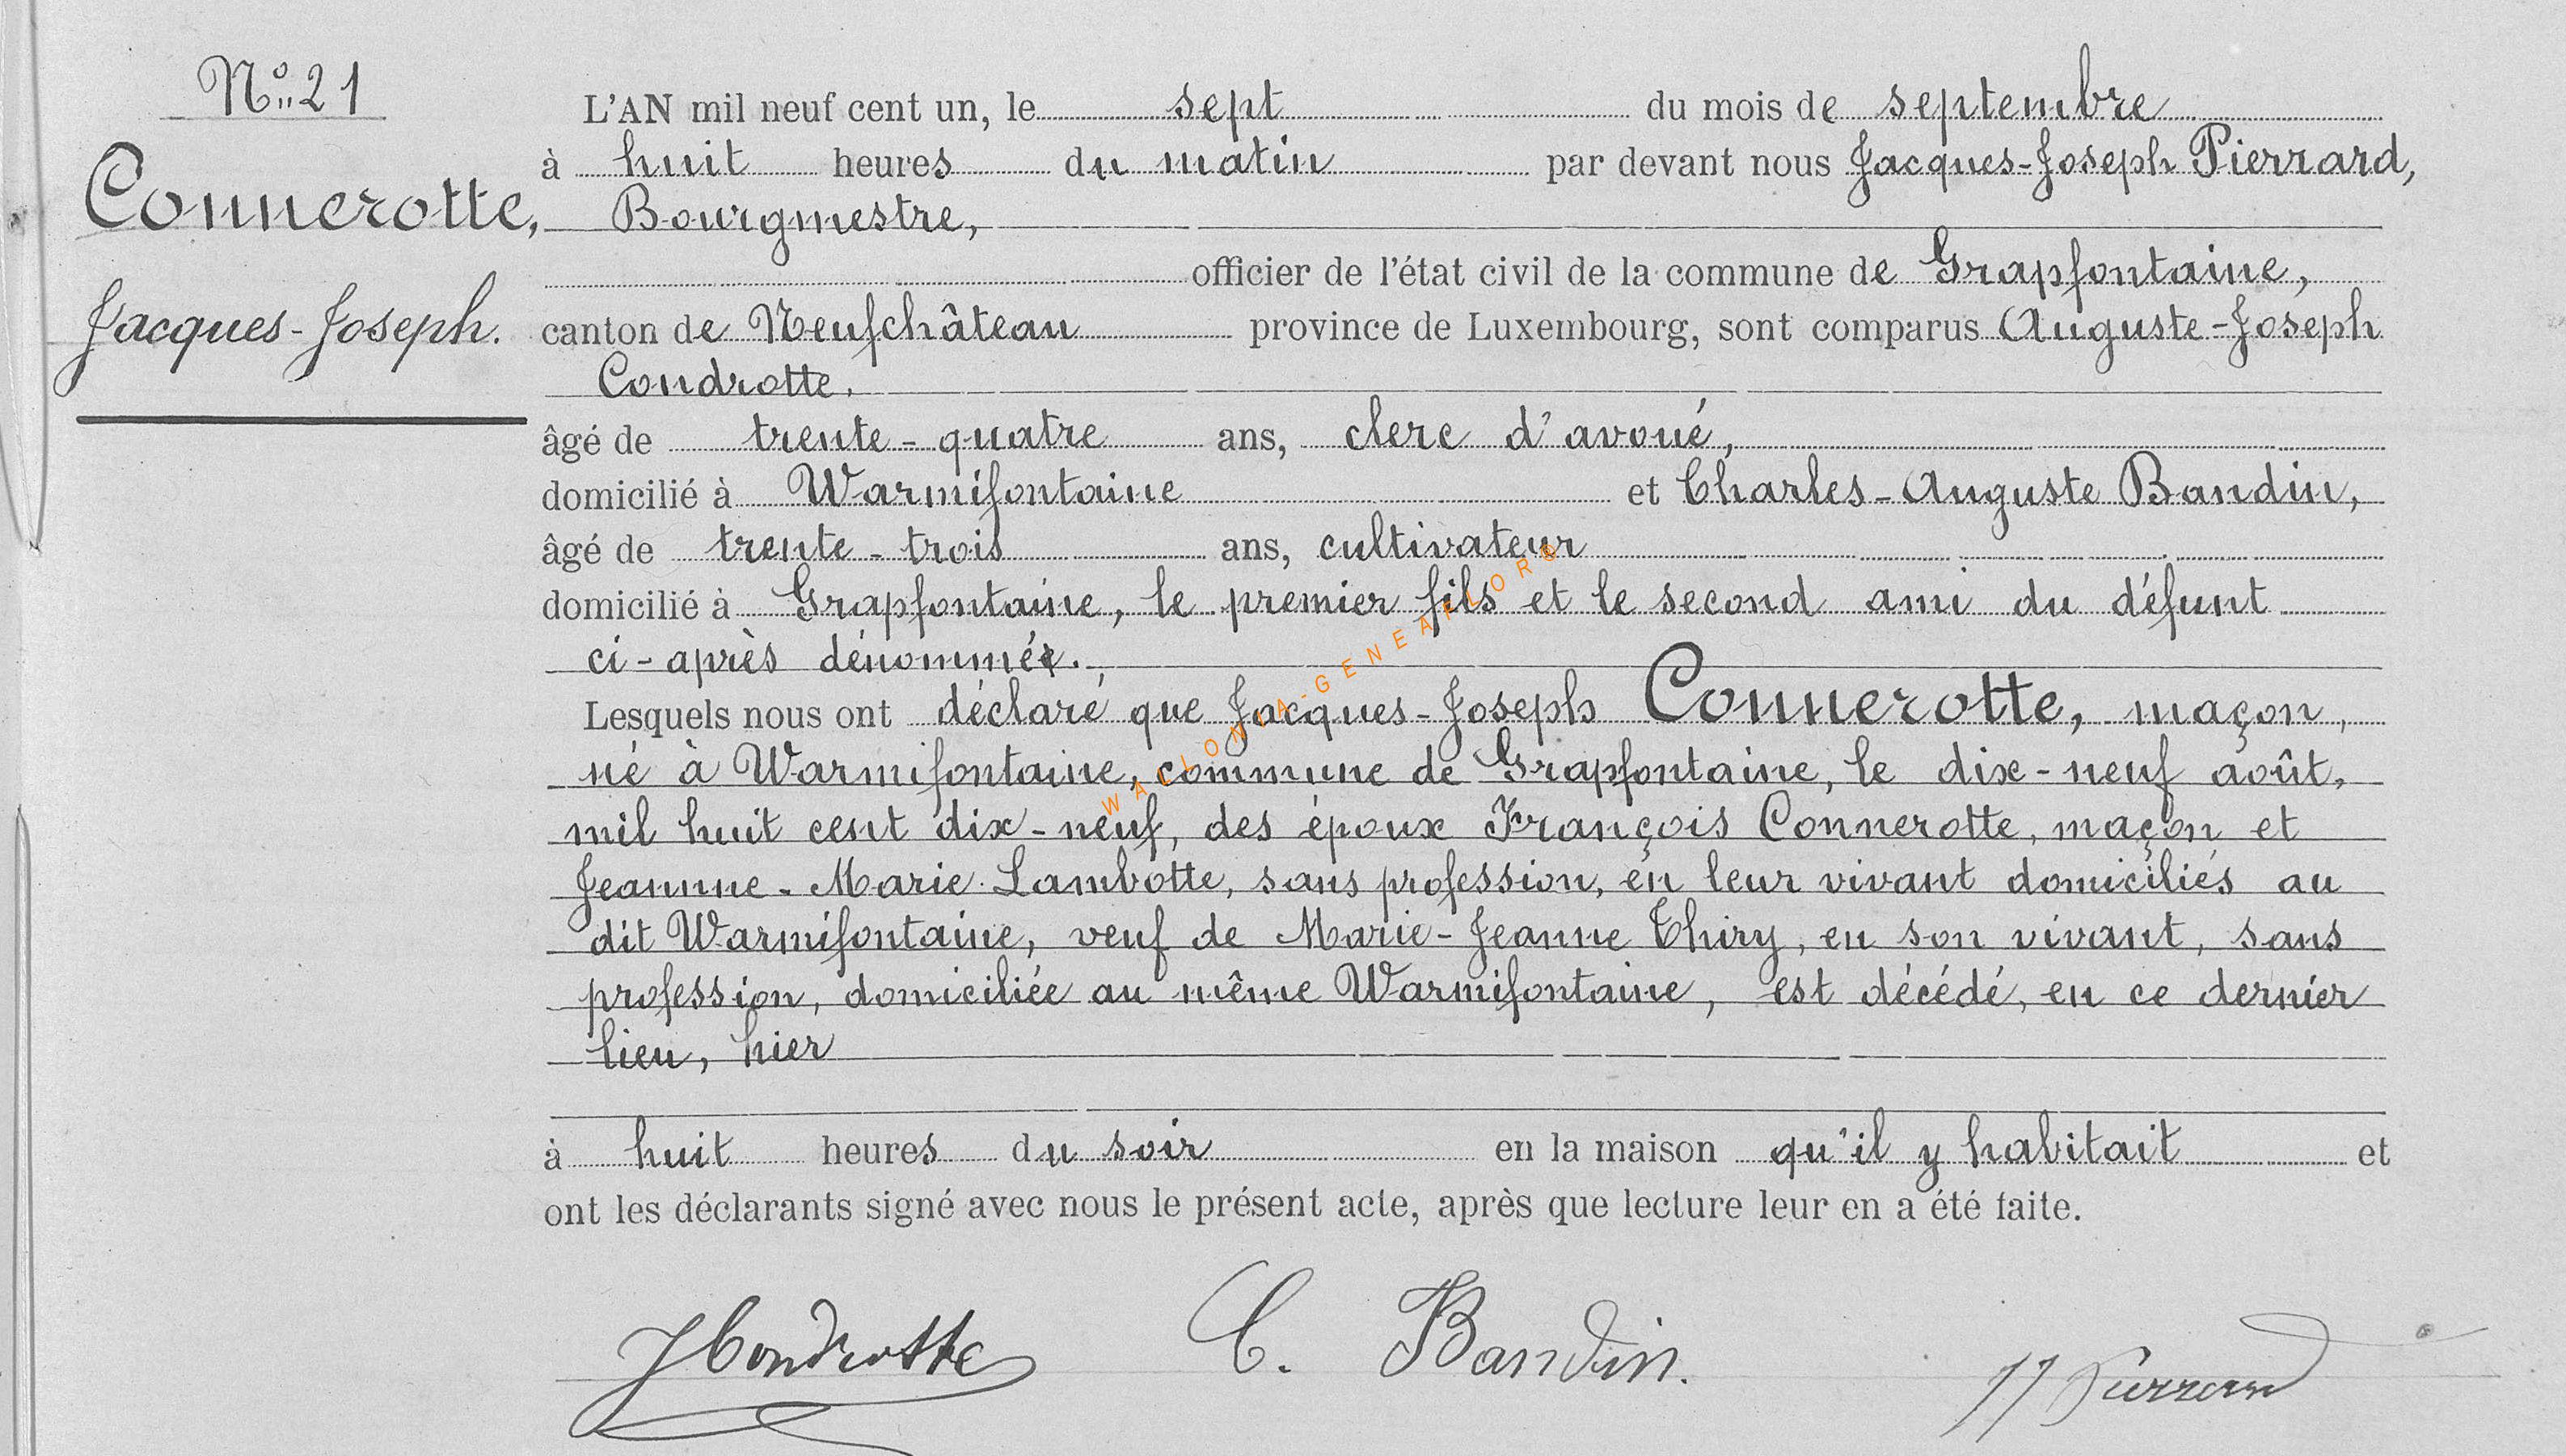 N° 21
Connerotte,
Jacques-Joseph.
L'AN mil neuf cent un, le sept du mois de septembre
à huit heures du matin par devant nous Jacques-Joseph Pierrard,
Bourgmestre,
officier de l'état civil de la commune de Grapfontaine,
canton de Neufchâteau province de Luxembourg, sont comparus Auguste-Joseph
Condrotte.
âgé de trente-quatre ans, clerc d'avoué,
domicilié à Warmifontaine et Charles-Auguste Bandin,
âgé de trente-trois ans, cultivateur
domicilié à Grapfontaine, le premier fils et le second ami du défunt
ci-après dénommé.
Lesquels nous ont déclaré que Jacques-Joseph Connerotte, maçon,
né à Warmifontaine, commune de Grapfontaine, le dix-neuf août,
mil huit cent dix-neuf, des époux François Connerotte, maçon et
Jeannne-Marie Lambotte, sans profession, en leur vivant domiciliés au
dit Warmifontaine, veuf de Marie-Jeanne Thiry, en son vivant, sans
profession, domiciliée au même Warmifontaine, est décédé, en ce dernier
lieu, hier
à huit heures du soir en la maison qu'il y habitait et
ont les déclarants signé avec nous le présent acte, après que lecture leur en a été faite.
JCondrotte C. Bandin. JJ Pierrard
WALLONIA-GENEAFLOR®